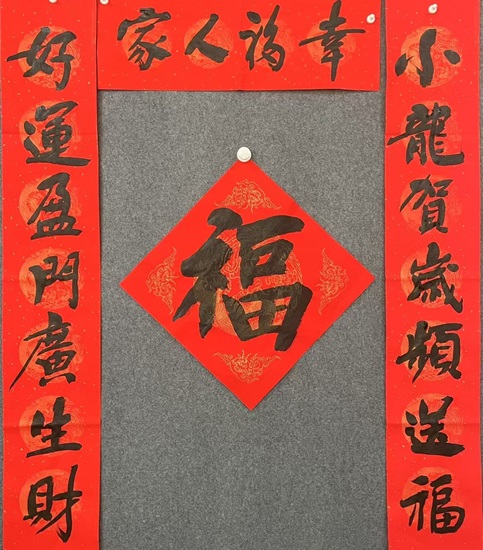 幸福人家
小龍賀歲頻送福
好運盈門廣生財
福